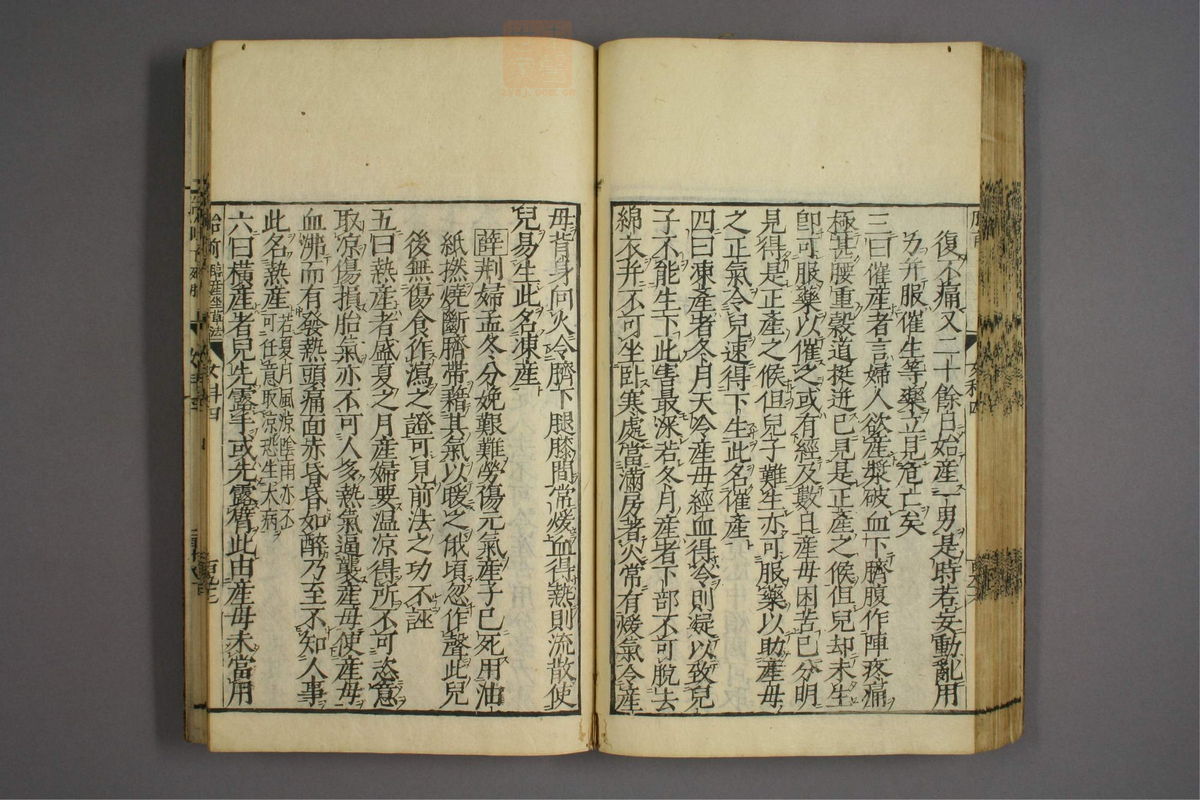 復不痛又二十餘日始産一男是時若妄動亂用
力并服催生等藥立見危亡矣
三曰催産者言婦人欲産漿破血下臍腹作陣疼痛
極甚腰重穀道挺迸已見是正産之候但兒却未生
即可服藥以催之或有經及數日産母困苦已分明
見得是正産之候但兒子難生亦可服藥以助産母
之正氣令兒速得下生此名催産
四曰凍産者冬月天冷産母經血得冷則凝以致兒
子不能生下此害最深若冬月産者下部不可脫去
綿衣并不可坐卧寒處當滿房著火常有煖氣令産
母背身向火令臍下腿膝間常煖血得熱則流散使
兒易生此名凍産
薛荆婦孟冬分娩艱難勞傷元氣産子已死用油
紙撚燒斷臍帶藉其氣以暖之俄頃忽作聲此兒
後無傷食作瀉之證可見前法之功不誣
五曰熱産者盛夏之月産婦要温凉得所不可恣意
取凉傷損胎氣亦不可人多熱氣逼襲産母使産母
血沸而有發熱頭痛面赤昏昏如醉乃至不知人事
此名熱産若夏月風凉陰雨亦不可任意取凉恐生大病
六曰橫産者兒先露手或先露臂此由産母未當用
胎前 臨産坐草法
女科四